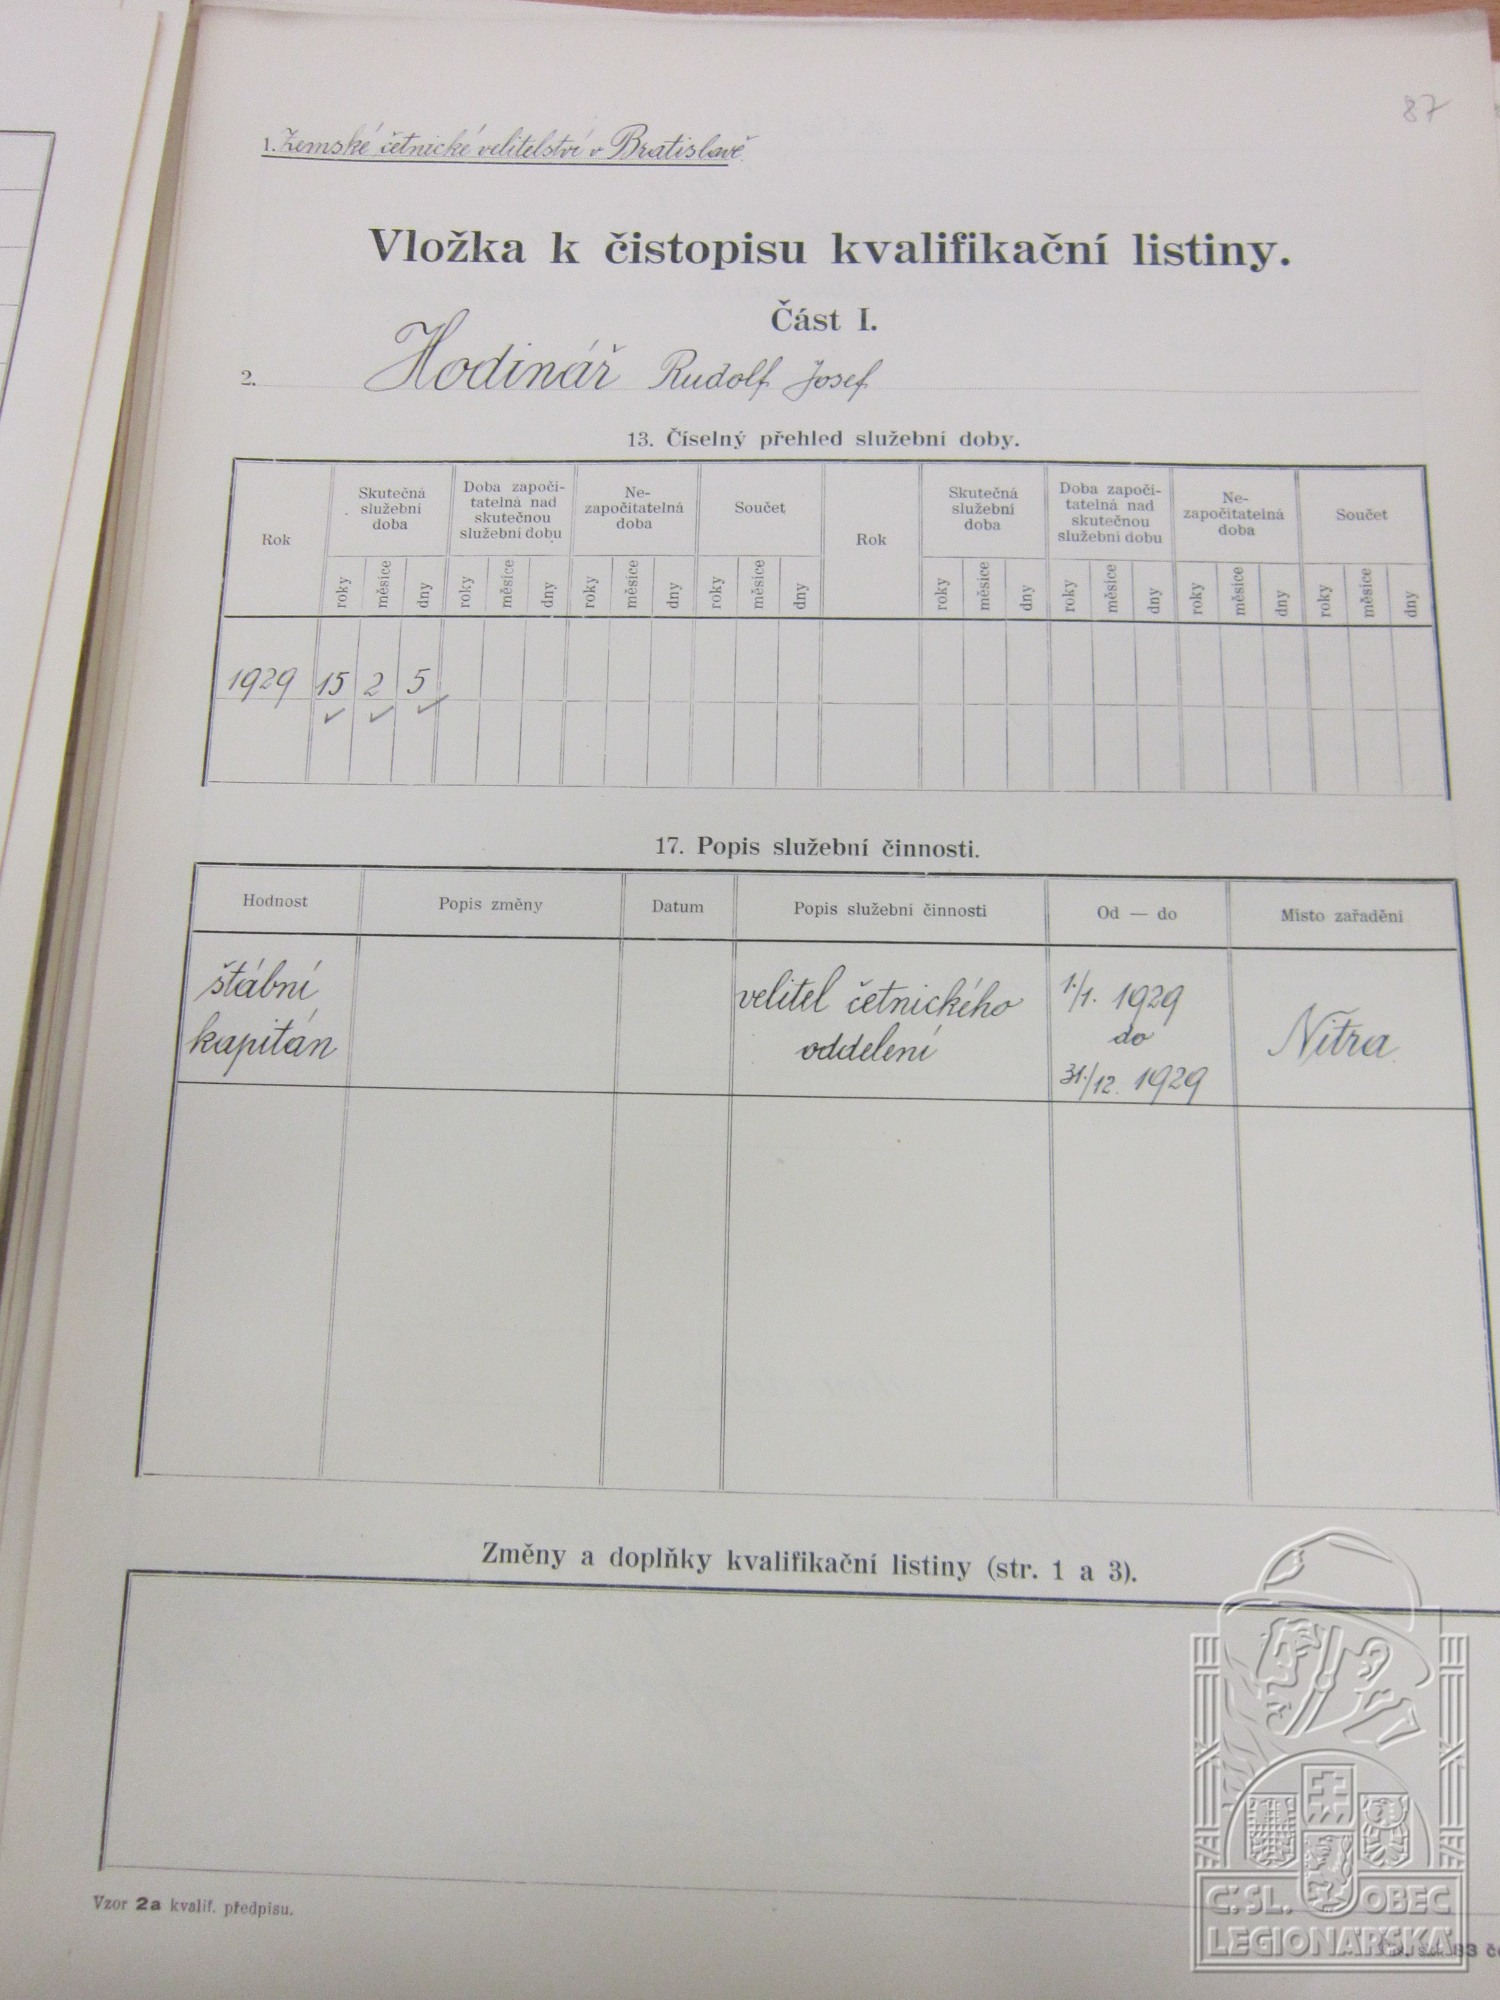 87
1. Zemské četnické velitelství v Bratislavě.
Vložka k čistopisu kvalifikační listiny.
Část I.
2. Hodinář Rudolf Josef
13. Číselný přehled služební doby.
Rok
Skutečná služební doba
Doba započi-tatelná nad skutečnou služební dobu
Ne-započitatelná doba
Součet
Rok
Skutečná služební doba
Doba započi-tatelná nad skutečnou služební dobu
Ne-započitatelná doba
Součet
roky měsíce dny roky měsíce dny roky měsíce dny roky měsíce dny roky měsíce dny roky měsíce dny roky měsíce dny roky měsíce dny
1929 15 2 5
17. Popis služební činnosti.
Hodnost Popis změny Datum Popis služební činnosti Od — do Místo zařadění
štábní
kapitán
velitel četnického
oddelení
1./1. 1929
do
31./12. 1929
Nitra
Změny a doplňky kvalifikační listiny (str. 1 a 3).
Vzor 2a kvalif. předpisu.
Č.SL. OBEC
LEGIONÁŘSKÁ